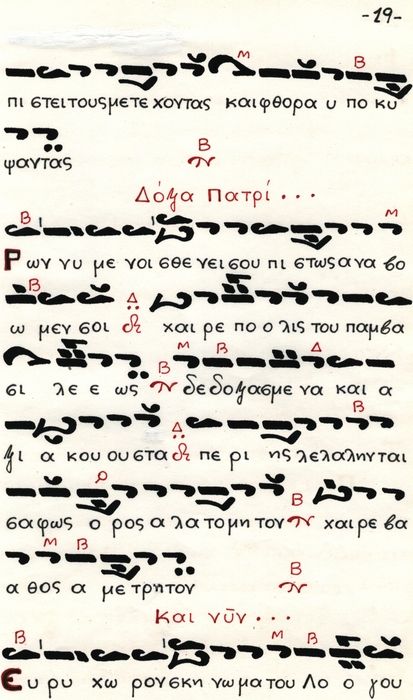 -19-
πι στει τους με τε χοντας και φθορα υ πο κυ
ψαντας
Δόξα Πατρί ...
Ρων νυ με νοι σθε νει σου πι στως α να βο
ω μεν σοι χαι ρε πο ο λις του παμ βα
σι λε ε ως δε δο ξα σμε να και α
ξι α κου ου στα πε ρι ης λε λα λην ται
σα φως ο ρος α λα το μη τον χαι ρε βα
α θος α με τρη τον
Και νῦν ...
Ευ ρυ χω ρον σκη νω μα του Λο ο γου